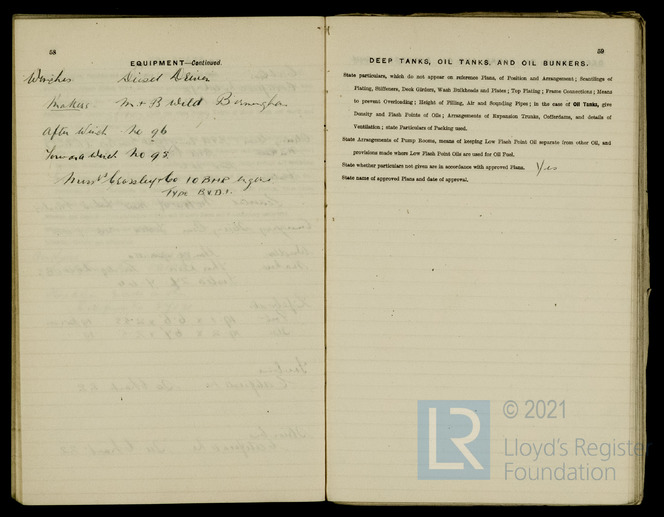 58
EQUIPMENT—Continued.
Winches Diesel Driven
Makers M & B Wild Birmingham
After Winch No 96
Forward Winch No 95
Messrs Crossley & Co 10 BHP
Type
59
DEEP TANKS, OIL TANKS, AND OIL BUNKERS.
State particulars, which do not appear on reference Plans, of Position and Arrangement; Scantlings of
Plating, Stiffeners, Deck Girders, Wash Bulkheads and Plates; Top Plating; Frame Connections; Means
to prevent Overloading; Height of Filling, Air and Sounding Pipes; in the case of Oil Tanks, give
Density and Flash Points of Oils; Arrangements of Expansion Trunks, Cofferdams, and details of
Ventilation; state Particulars of Packing used.
State Arrangements of Pump Rooms, means of keeping Low Flash Point Oil separate from other Oil, and
provisions made where Low Flash Point Oils are used for Oil Fuel.
State whether particulars not given are in accordance with approved Plans. Yes
State name of approved Plans and date of approval.
LR © 2021
Lloyd's Register
Foundation